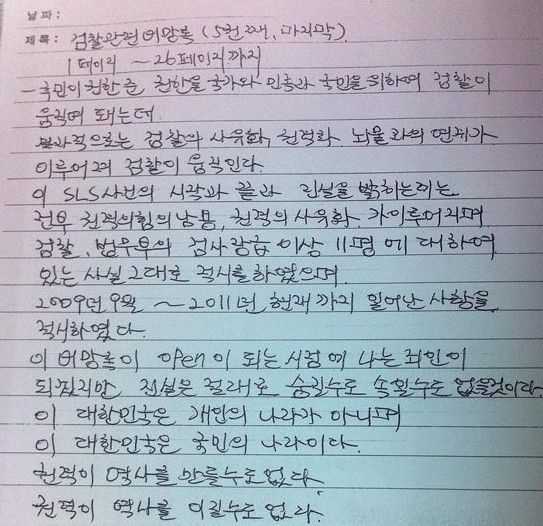 날 짜 :
제 목 : 검찰관련 비망록 (5번째, 마지막).
1페이지 ~ 26페이지 까지
- 국민이 권한을 준 권한을 국가와 민족과 국민을 위하여 검찰이
움직여 돼는데.
결과적으로는 검찰의 사유화, 권력화 뇌물과의 연계가
이루어져 검찰이 움직인다.
이 SLS사건의 시작과 끝과 진실을 밝히는데는
전부 권력의힘의남용, 권력의 사유화, 가이루어지며
검찰, 법무부의 검사장급 이상 11명 에 대하여
있는 사실 그대로 적시를 하였으며.
2009년 9월 ~ 2011년 현재 까지 일어난 사항을
적시하였다.
이 비망록이 open이 되는 시점에 나는 죄인이
되겠지만 진실은 절대로 숨길수도 속일수도 없을것이다.
이 대한민국은 개인의 나라가 아니며
이 대한민국은 국민의 나라이다.
권력이 역사를 만들수도없다.
권력이 역사를 이길수도없다.